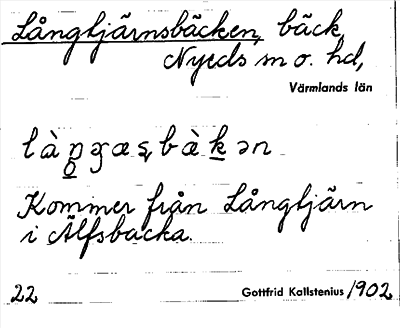 Långtjärnsbäcken, bäck,
Nyeds sn o. hd,
Värmlands län
Kommer från Långtjärn
i Älfsbacka.
22
Gottfrid Kallstenius 1902